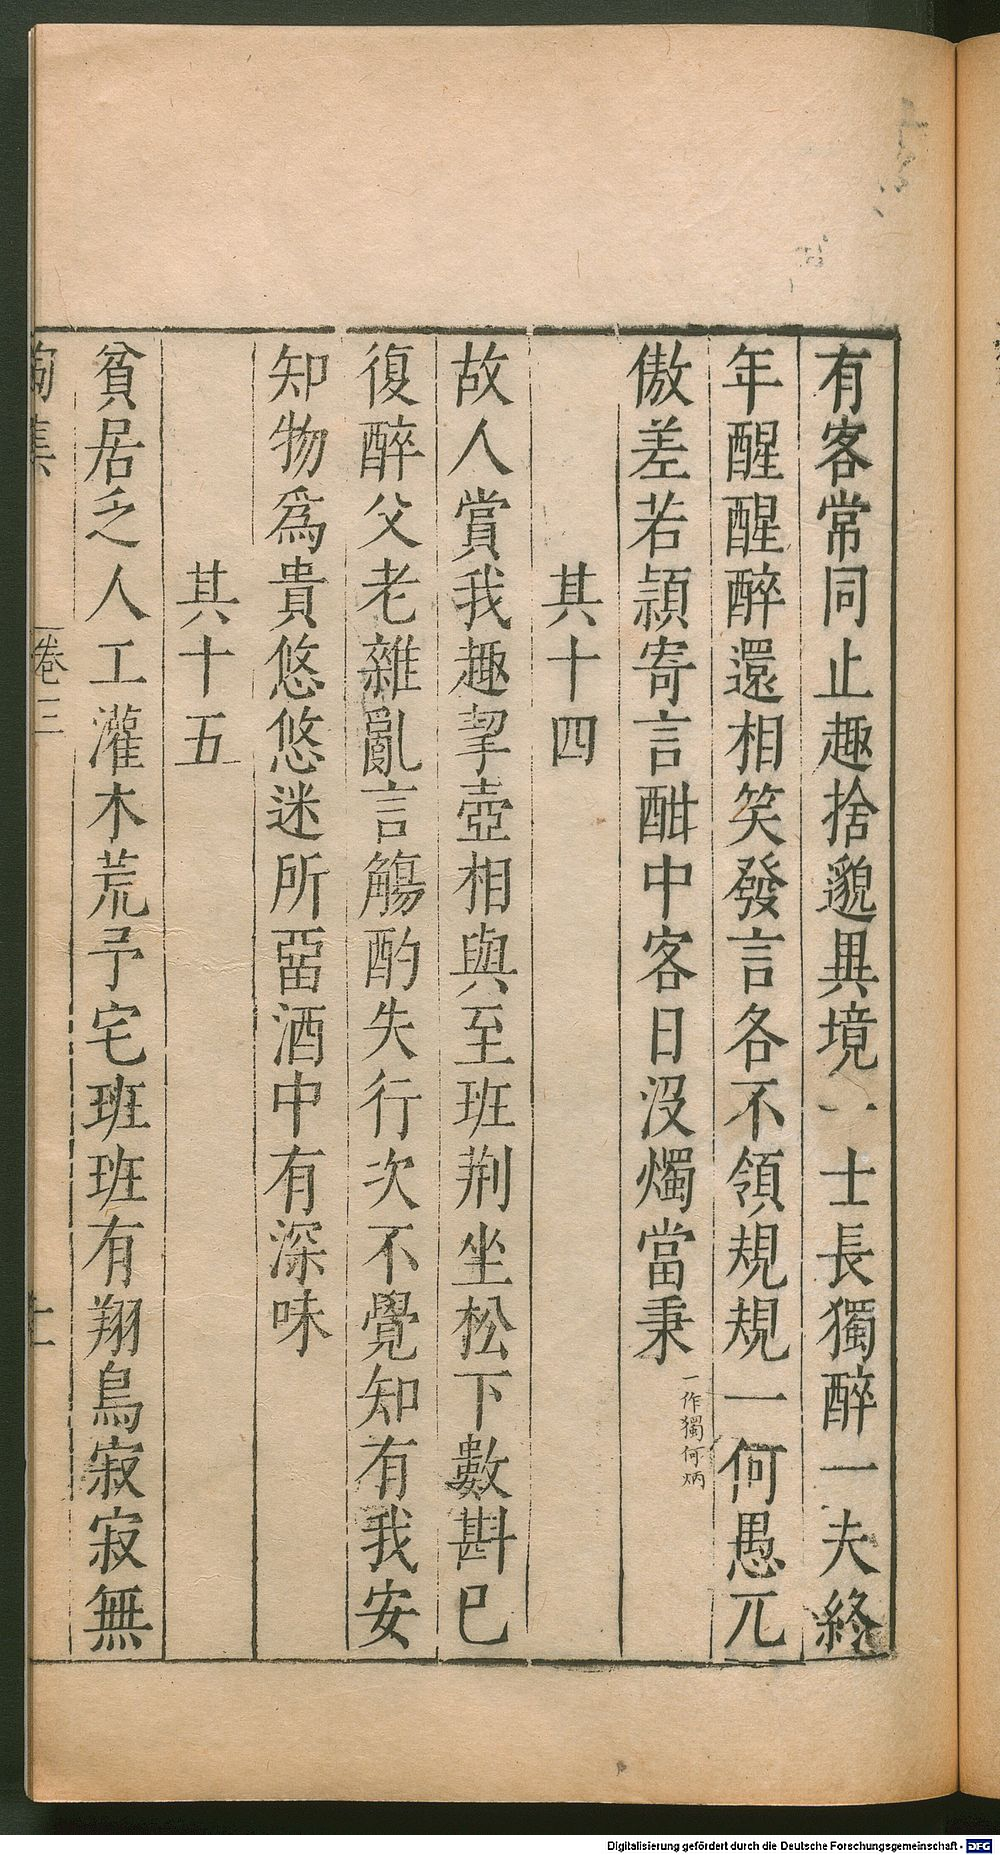 有客常同止趣捨邈異境一士長獨醉一夫終
年醒醒醉還相笑發言各不領規規一何愚兀
傲差若潁寄言酣中客日没燭當秉一作獨何炳
其十四
故人賞我趣挈壺相與至班荆坐松下數斟已
復醉父老雜亂言觴酌失行次不覺知有我安
知物爲貴悠悠迷所畱酒中有深味
其十五
貧居乏人工灌木荒予宅班班有翔鳥寂寂無
陶集 卷三
Digitalisierung gefördert durch die Deutsche Forschungsgemeinschaft - DFG